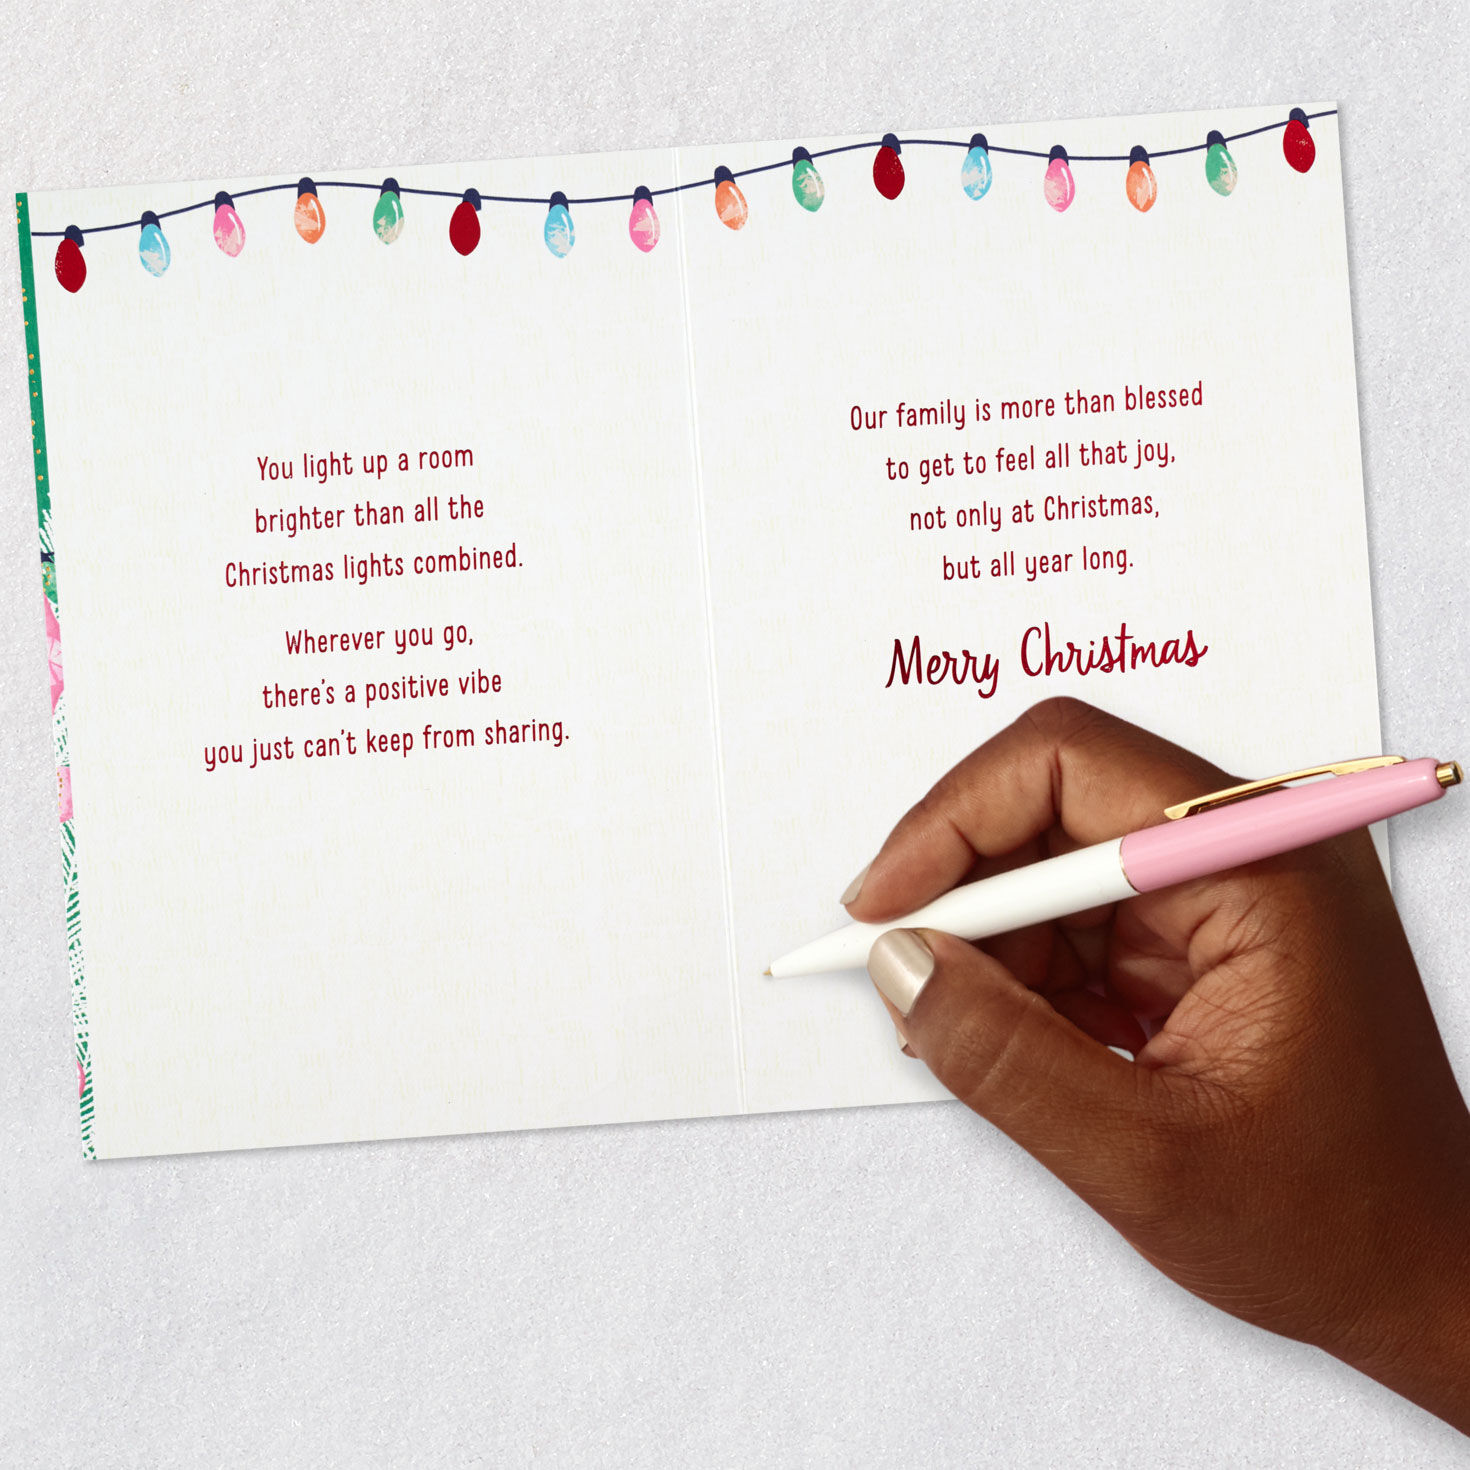 You light up a room
brighter than all the
Christmas lights combined.
Wherever you go,
there's a positive vibe
you just can't keep from sharing.
Our family is more than blessed
to get to feel all that joy,
not only at Christmas,
but all year long.
Merry Christmas